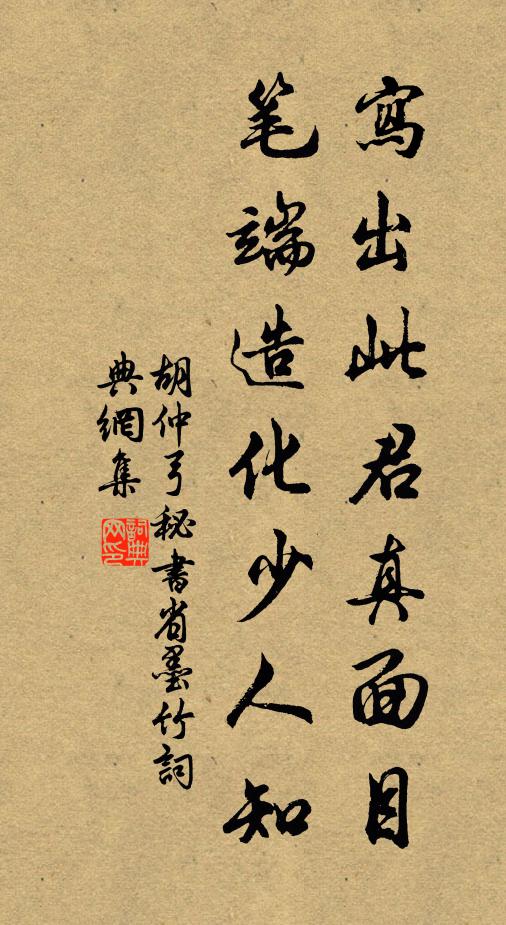 寫出此君真面目
笔端造化少人知
胡仲弓秘書省墨竹詞
典網集
詞典网印